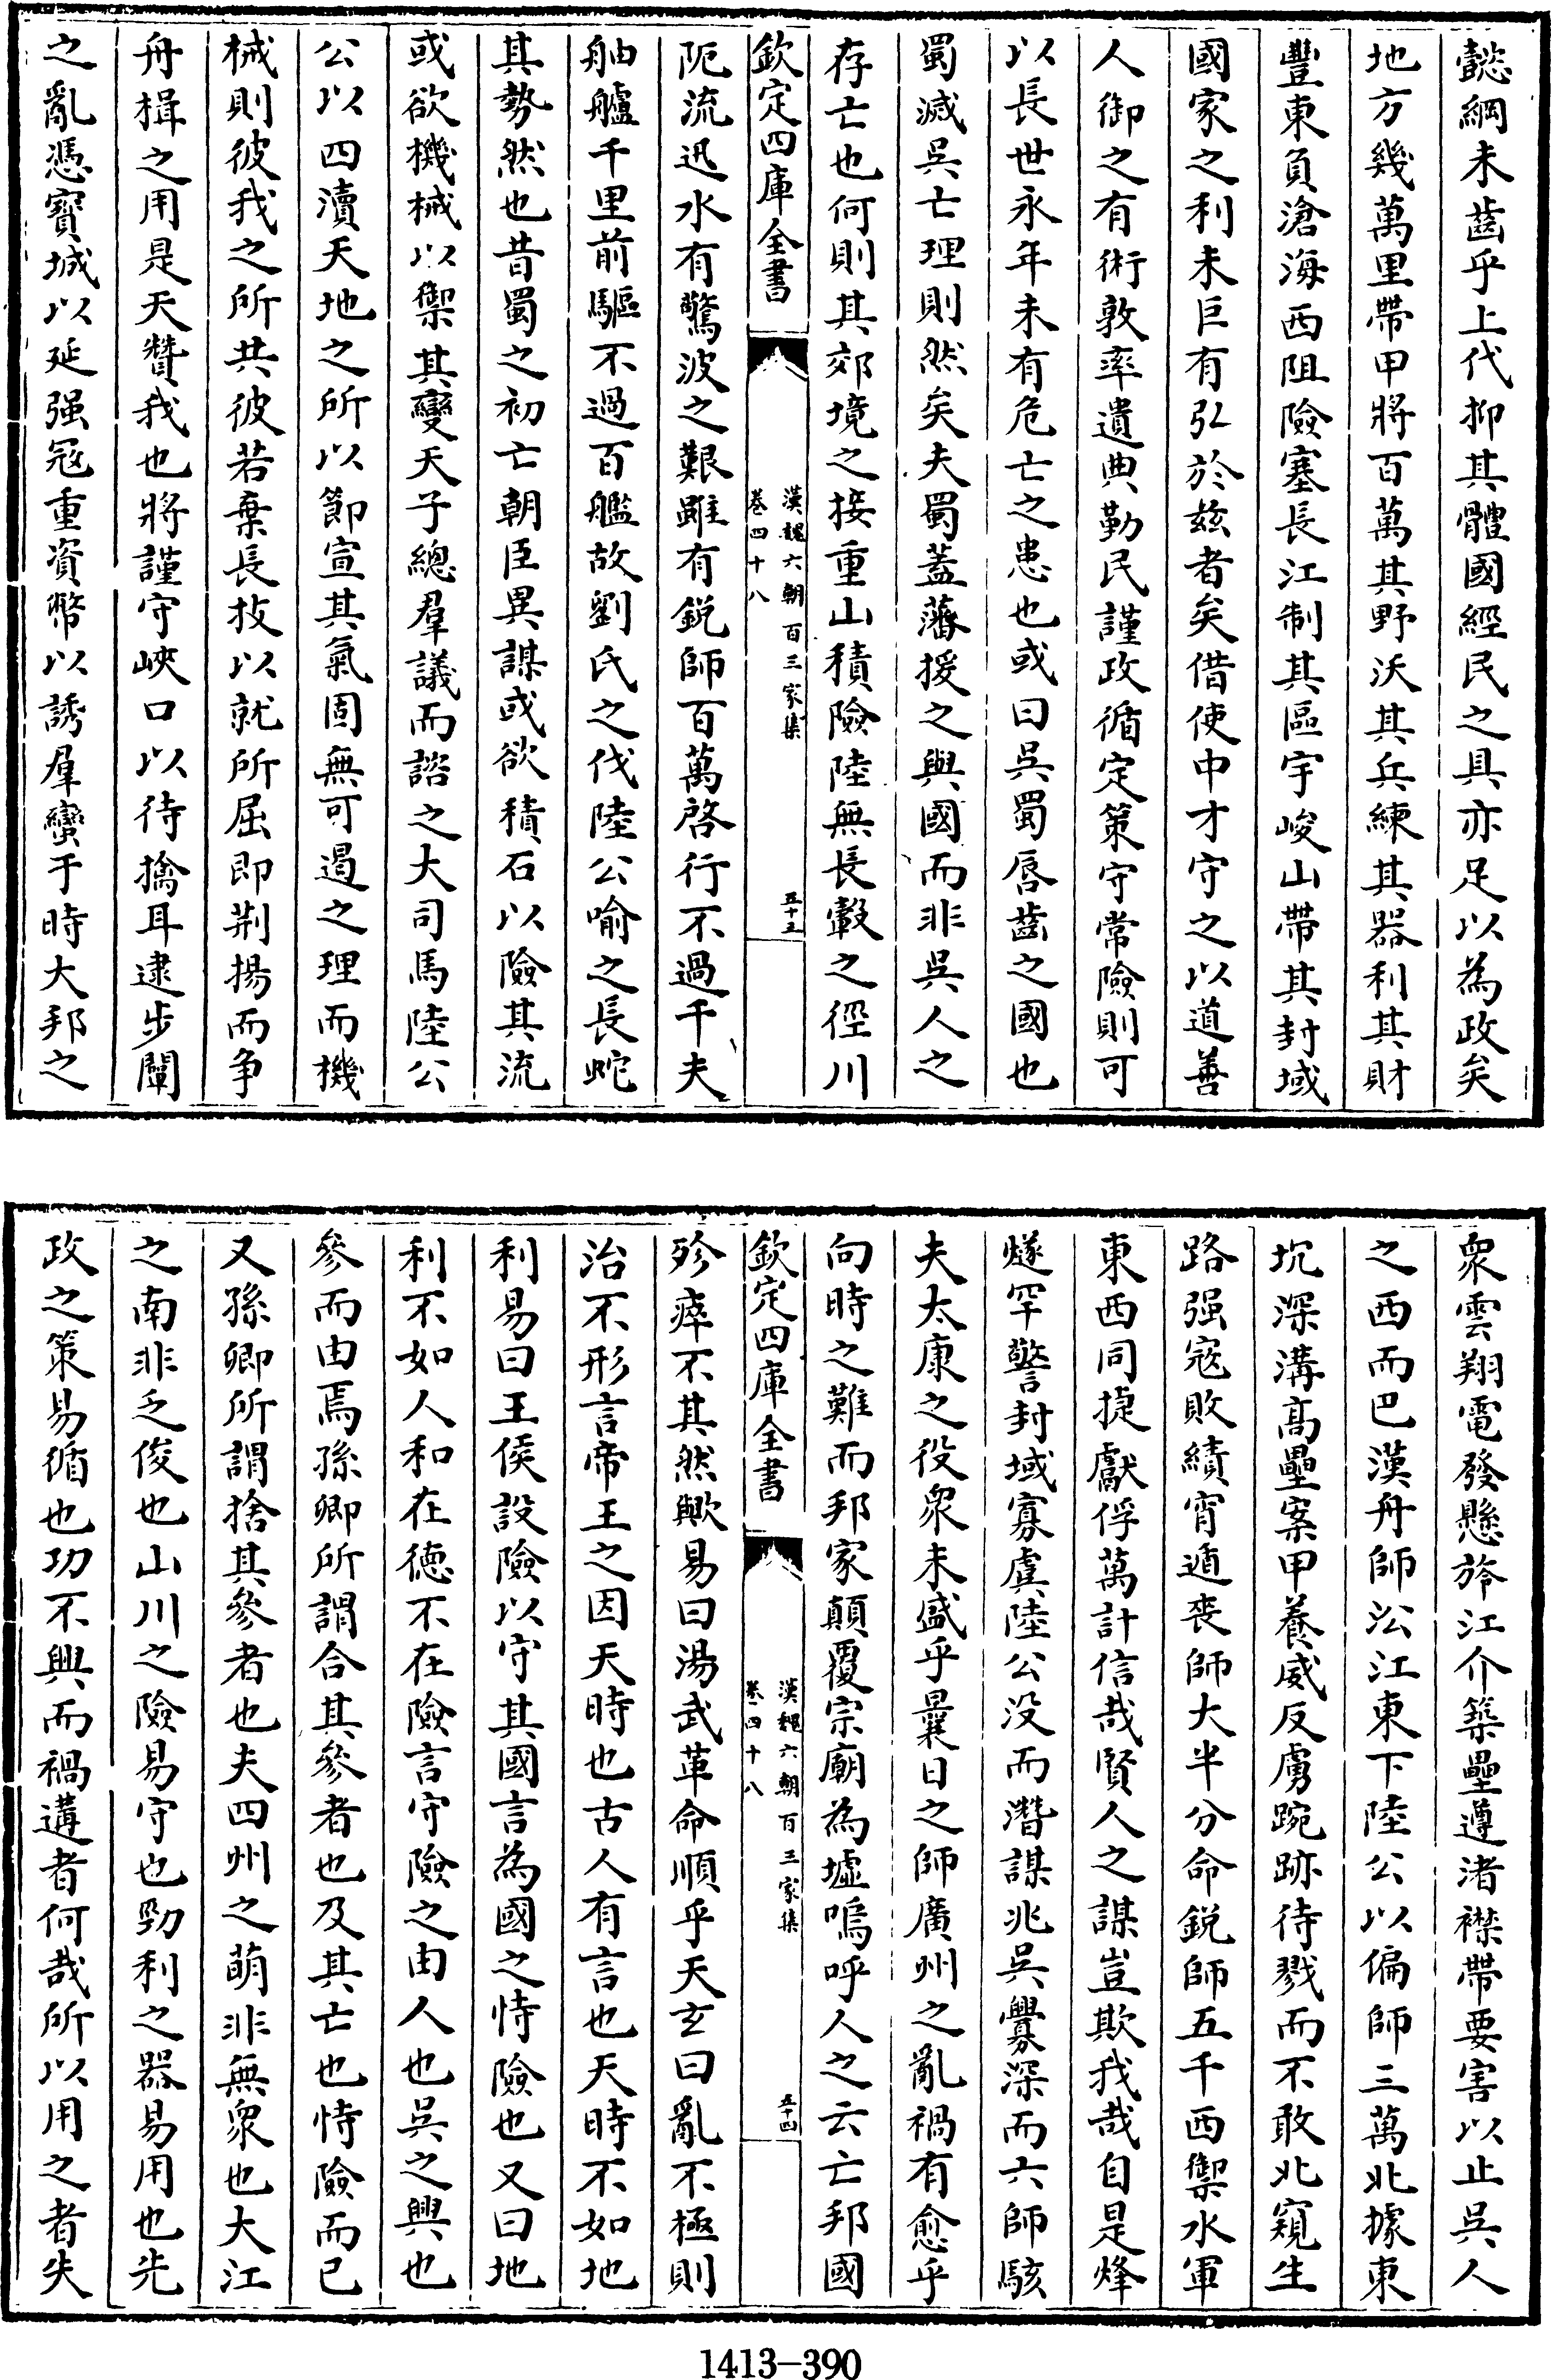 懿綱未齒乎上代抑其體國經民之具亦足以為政矣
地方幾萬里帶甲將百萬其野沃其兵練其器利其財
豐東負滄海西阻險塞長江制其區宇峻山帶其封域
國家之利未巨有弘於茲者矣借使中才守之以道善
人御之有術敦率遺典勤民謹政循定策守常險則可
以長世永年未有危亡之患也或曰吳蜀脣齒之國也
蜀滅吳亡理則然矣夫蜀蓋藩援之與國而非吳人之
存亡也何則其郊境之接重山積險陸無長轂之徑川
欽定四庫全書
漢魏六朝百三家集
卷四十八
五十三
阨流迅水有驚波之艱雖有銳師百萬啓行不過千夫
舳艫千里前驅不過百艦故劉氏之伐陸公喻之長蛇
其勢然也昔蜀之初亡朝臣異謀或欲積石以險其流
或欲機械以禦其變天子總羣議而諮之大司馬陸公
公以四瀆天地之所以節宣其氣固無可遏之理而機
械則彼我之所共彼若棄長技以就所屈即荆揚而争
舟楫之用是天贊我也將謹守峽口以待擒耳逮步闡
之亂憑寶城以延强冦重資幣以誘羣蠻于時大邦之
衆雲翔電發懸旍江介築壘遵渚襟帶要害以止吳人
之西而巴漢舟師沿江東下陸公以偏師三萬北據東
坑深溝髙壘案甲養威反虜踠跡待戮而不敢北窺生
路强寇敗績宵遁喪師大半分命銳師五千西禦水軍
東西同捷獻俘萬計信哉賢人之謀豈欺我哉自是烽
燧罕警封域寡虞陸公没而潛謀兆吳釁深而六師駭
夫太康之役衆未盛乎曩日之師廣州之亂禍有愈乎
向時之難而邦家顛覆宗廟為墟嗚呼人之云亡邦國
欽定四庫全書
漢魏六朝百三家集
卷四十八
五十四
殄瘁不其然歟易曰湯武革命順乎天玄曰亂不極則
治不形言帝王之因天時也古人有言也天時不如地
利易曰王侯設險以守其國言為國之恃險也又曰地
利不如人和在德不在險言守險之由人也吳之興也
參而由焉孫卿所謂合其參者也及其亡也恃險而已
又孫卿所謂捨其參者也夫四州之萌非無衆也大江
之南非乏俊也山川之險易守也勁利之器易用也先
政之策易循也功不興而禍遘者何哉所以用之者失
1413-390